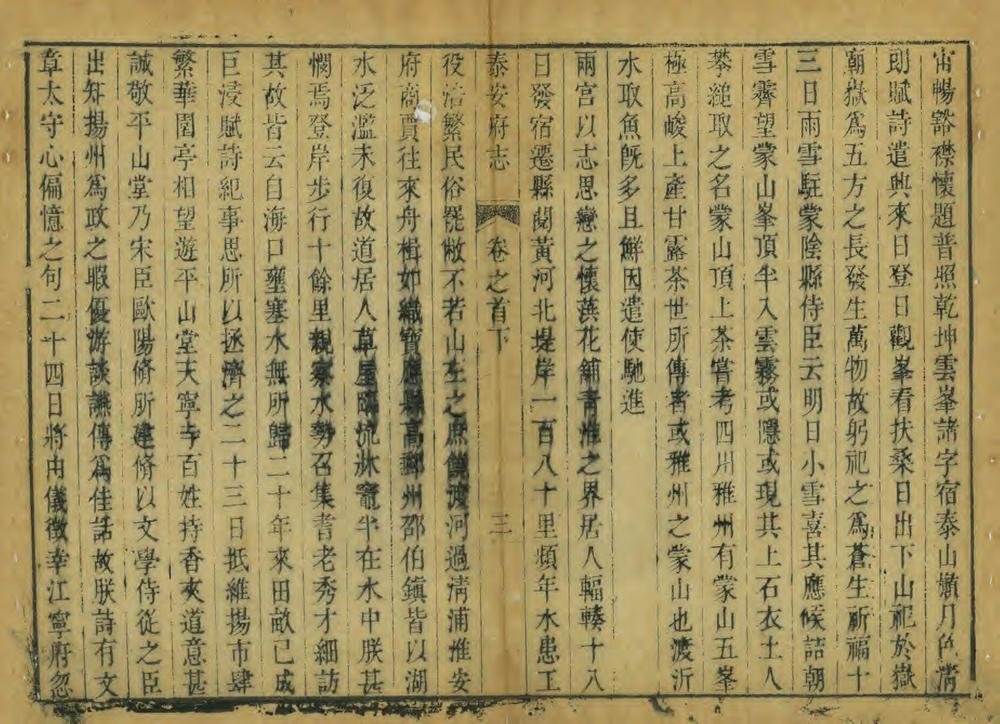 宙暢豁襟懷題普照乾坤雲峯諸字宿泰山嶺月色淸
則賦詩遣興來日登日觀峯看扶桑日出下山祀於嶽
廟嶽爲五方之長發生萬物故躬祀之爲蒼生祈福十
三日雨雪駐蒙陰縣侍臣云明日小雪喜其應候詰朝
雪霽望蒙山峯頂半入雲霧或隱或現其上石衣土人
攀縋取之名蒙山頂上茶嘗考四川雅州有蒙山五峯
極高峻上產甘露茶世所傳者或雅州之蒙山也渡沂
水取魚旣多且鮮因遣使馳進
兩宮以志思戀之懷蕻花鋪靑淮之界居人輻輳十八
日發宿遷縣閱黃河北堤岸一百八十里頻年水患工
泰安府志 卷之首下 三
役浩繁民俗罷敝不若山左之庶饒渡河過淸浦淮安
府商賈往來舟楫如織寶應縣高郵州邵伯鎮皆以湖
水泛濫未復故道居人草屋臨流牀竈半在水中朕甚
憫焉登岸步行十餘里親察水勢召集耆老秀才細訪
其故皆云自海口壅塞水無所歸二十年來田畝已成
巨浸賦詩紀事思所以拯濟之二十三日抵維揚市肆
繁華園亭相望遊平山堂天寧寺百姓持香夾道意甚
誠敬平山堂乃宋臣歐陽脩所建脩以文學侍從之臣
出知揚州爲政之暇優游談讌傳爲佳話故朕詩有文
章太守心偏憶之句二十四日將由儀徵幸江寧府忽